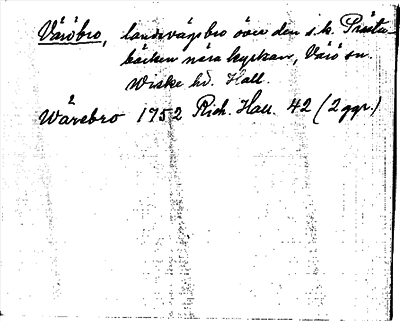 Väröbro, landsvägsbro över den s.k. Präste-
bäcken nära kyrkan, Värö sn.
Wiske hd. Hall.
Wårebro 1752 Rich. Hall. 42 (2 ggr.)